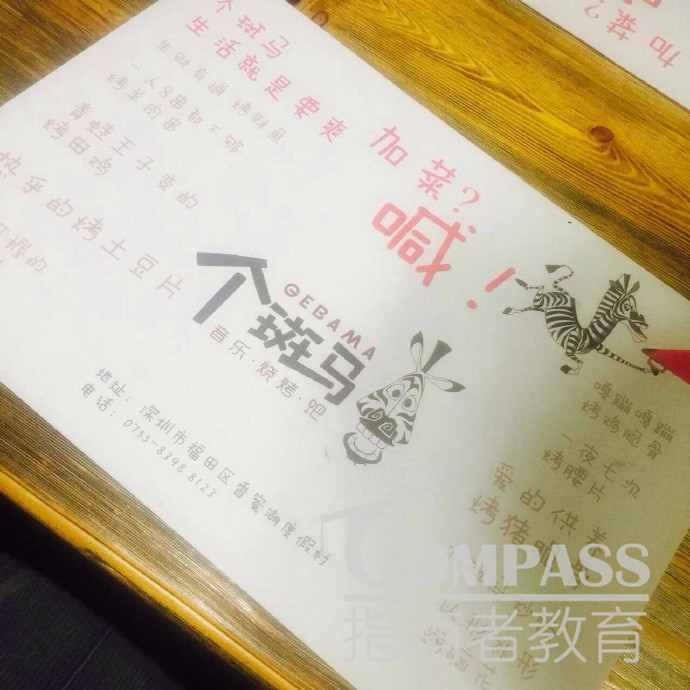 个斑马
生活就是要爽
生财有道 烤财鱼
一人8串都不够
烤羊肉串
青蛙王子变的
烤田鸡
热乎的烤土豆片
加菜?
喊!
GEBAMA
个斑马
音乐·烧烤·吧
地址:深圳市福田区香蜜湖度假村
电话:0755-8398 8123
嘎嘣嘎嘣
烤鸡脆骨
一夜七次
烤腰片
爱的供养
烤猪
加菜?
COMPASS
指南者教育